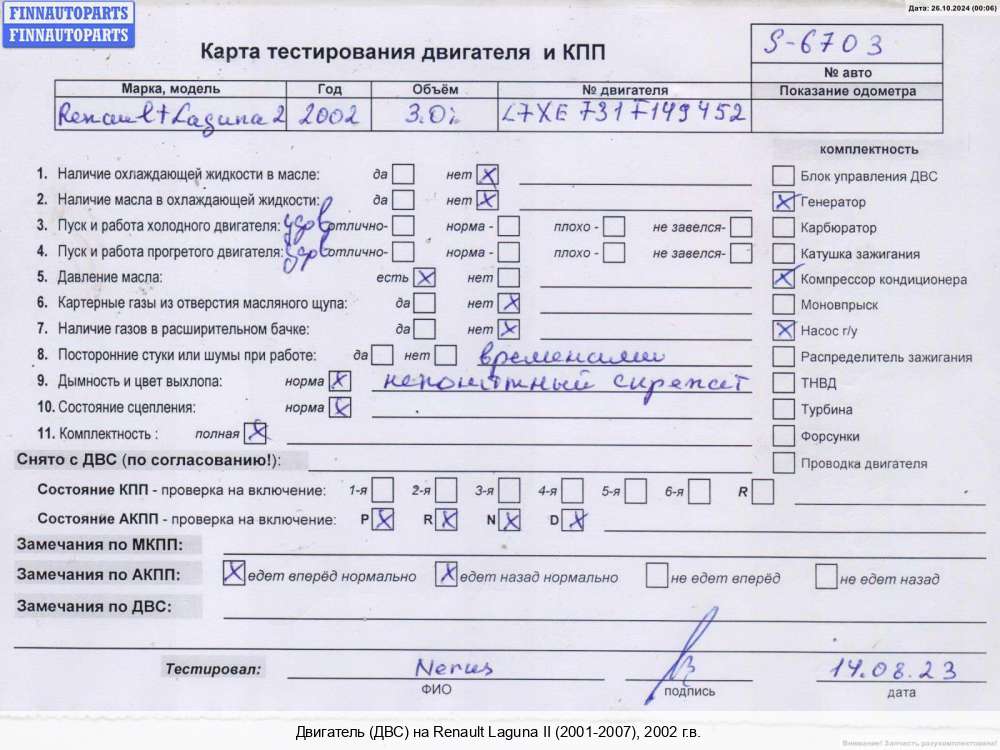 FINNAUTOPARTS
FINNAUTOPARTS
Дата: 26.10.2024 (00:06)
Карта тестирования двигателя и КПП
S-6703
№ авто
Марка, модель Год Объём № двигателя Показание одометра
Renault Laguna 2 2002 3.0i L7XE 731 F149452
комплектность
1. Наличие охлаждающей жидкости в масле: да нет X
Блок управления ДВС
2. Наличие масла в охлаждающей жидкости: да нет X
X Генератор
3. Пуск и работа холодного двигателя: удов отлично- норма - плохо - не завелся-
Карбюратор
4. Пуск и работа прогретого двигателя: удов отлично- норма - плохо - не завелся-
Катушка зажигания
5. Давление масла: есть X нет
X Компрессор кондиционера
6. Картерные газы из отверстия масляного щупа: да нет X
Моновпрыск
7. Наличие газов в расширительном бачке: да нет X
X Насос г/у
8. Посторонние стуки или шумы при работе: да нет временами
Распределитель зажигания
9. Дымность и цвет выхлопа: норма X непонятный скрежет
ТНВД
10. Состояние сцепления: норма X
Турбина
11. Комплектность : полная X
Форсунки
Снято с ДВС (по согласованию!):
Проводка двигателя
Состояние КПП - проверка на включение: 1-я 2-я 3-я 4-я 5-я 6-я R
Состояние АКПП - проверка на включение: P X R X N X D X
Замечания по МКПП:
Замечания по АКПП: X едет вперёд нормально X едет назад нормально не едет вперёд не едет назад
Замечания по ДВС:
Тестировал: Nerus 14.08.23
ФИО подпись дата
Двигатель (ДВС) на Renault Laguna II (2001-2007), 2002 г.в.
Внимание! Запчасть разукомплектована!